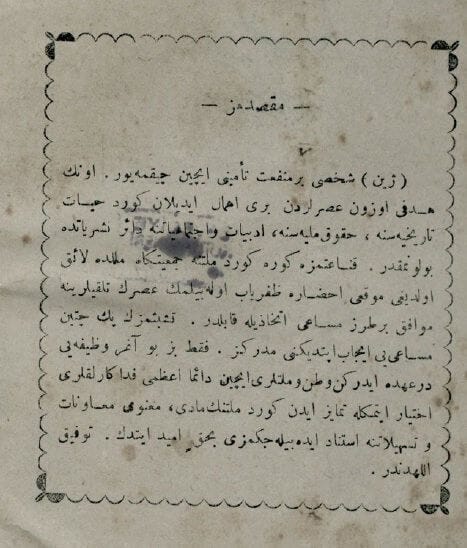 — مقصدمز —
(ژین) شخصی بر منفعت تأمینی ایچین چیقمه‌یور . اونك
هدفی اوزون عصرلردن بری اهمال ایدیلان کورد حیات
تاریخیه‌سنه ، حقوق ملیه‌سنه ، ادبیات واجتماعیاتنه دائر نشریاتده
بولونمقدر . قناعتمزه کوره کورد ملتنه جمعیتکاه مللده لائق
اولدیغی موقعی احضاره ظفریاب اوله‌بیلمك عصرك تلقیلرینه
موافق بر طرز مساعی اتخاذیله قابلدر . تشبثمزك پك چتین
مساعی‌یی ایجاب ایتدیکنی مدرکز . فقط بز بو آغر وظیفه‌یی
درعهده ایدرکن وطن وملتلری ایچین دائما اعظمی فداکارلقلری
اختیار ایتمکله تمایز ایدن کورد ملتنك مادی ، معنوی معاونات
و تسهیلاتنه استناد ایده‌بیله‌جکمزی بحق امید ایتدك . توفیق
اللهدندر .